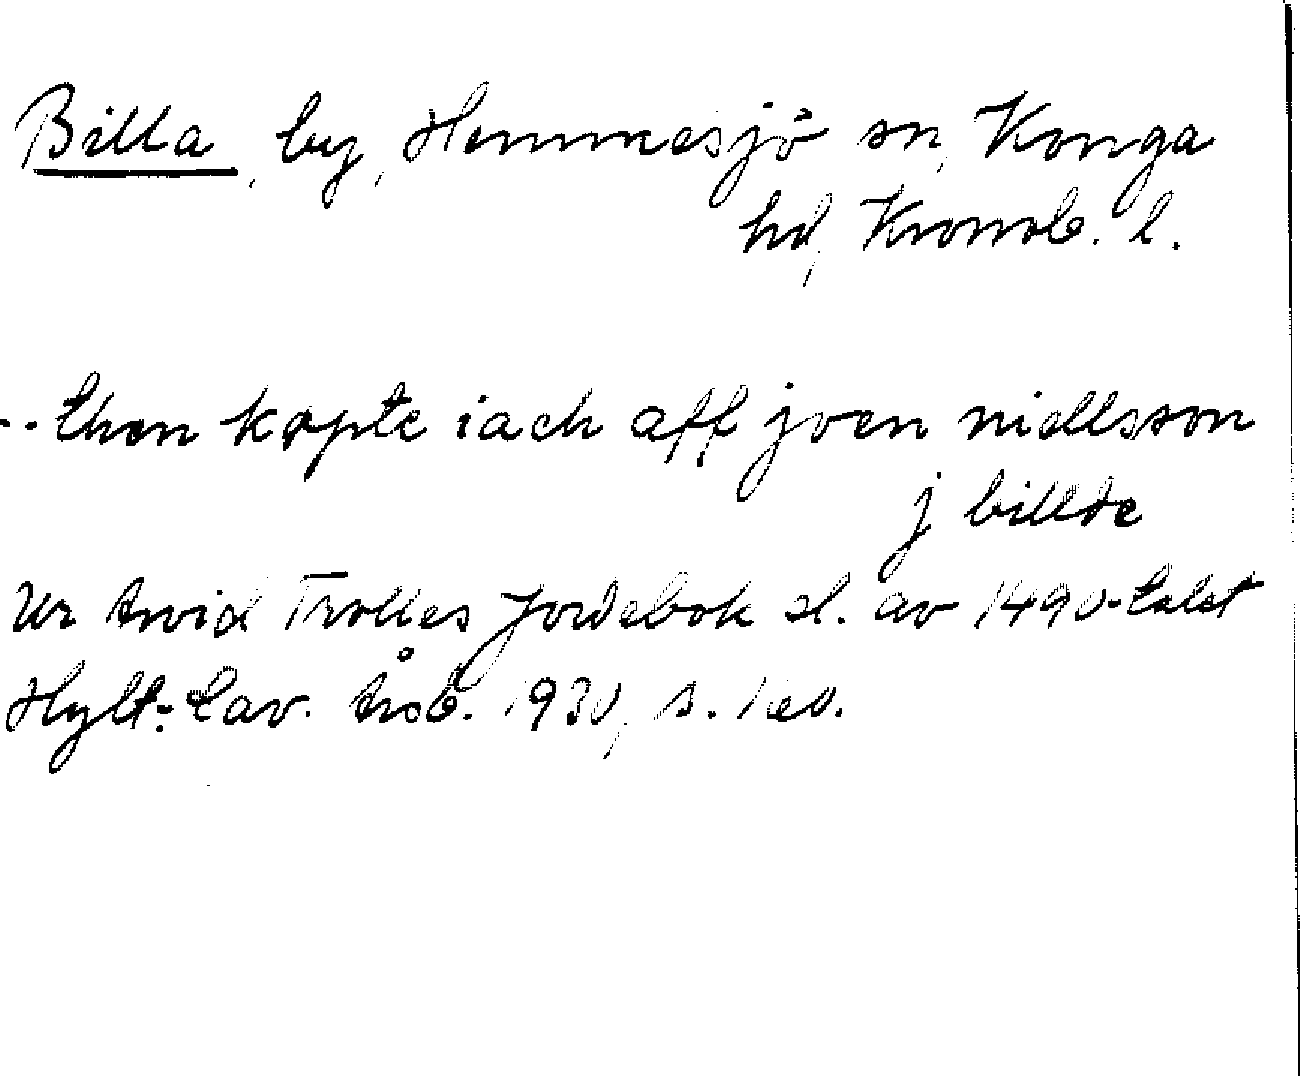 Billa, by, Hemmesjö sn, Konga
hd, Kronob. l.
-- then køpte iach aff joen niellsson
j billde
Ur Arvid Trolles Jordebok sl. av 1490-talet
Hylt.-Cav. årsb. 1930, s. 160.